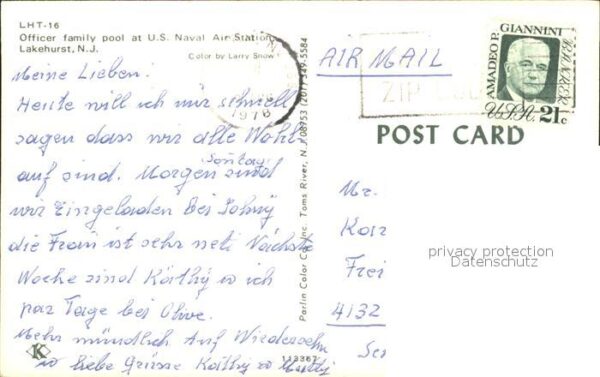 LHT-16
Officer family pool at U.S. Naval Air Station
Lakehurst, N.J.
Color by Larry Snow
Meine Lieben!
Heute will ich mir schnell
sagen dass wir alle Wohl
auf sind. Morgen Sontag sind
wir Eingeladen bei Johny
die Frau ist sehr nett Nächste
Woche sind Käthy u ich
par Tage bei Olive.
Mehr mündlich Auf Wiedersehn
u liebe Grüsse Käthy u
K
113367
Parlin Color Co., Inc. Toms River, N.J. 08753 (201) 349-5584
1976
AIR MAIL
ZIP
AMADEO P. GIANNINI
BANKER
U.S.A. 21c
POST CARD
Mr.
Kar
Frei
4132
privacy protection
Datenschutz